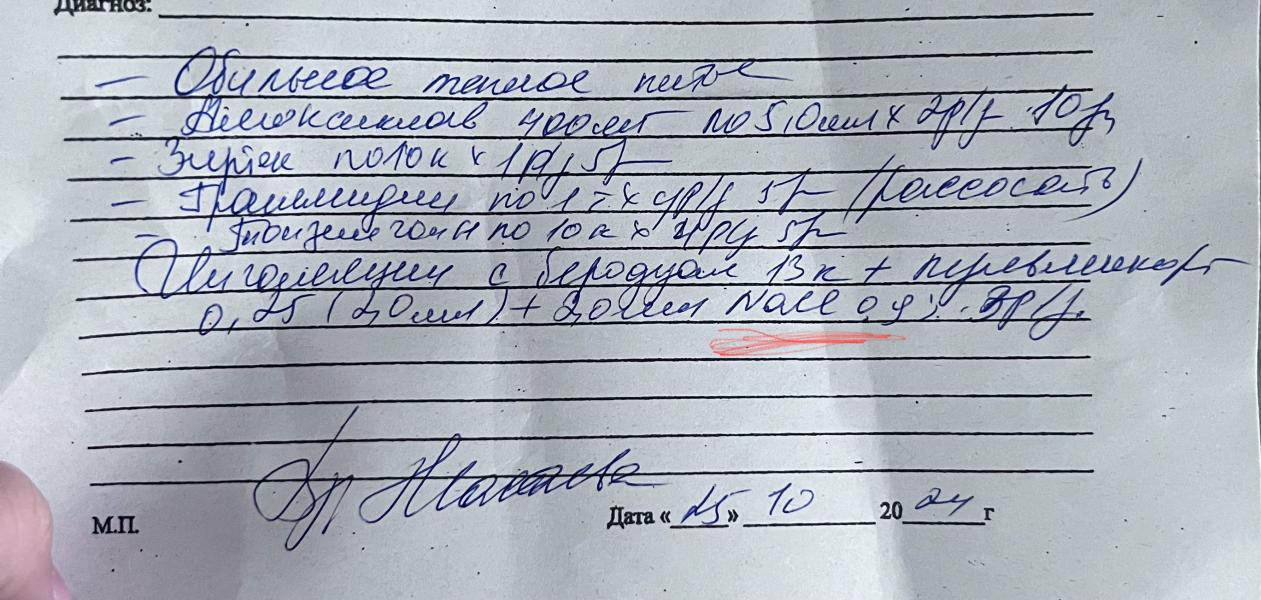 Диагноз:
– Обильное теплое питье
– Амоксиклав 400мг по 5,0мл х 2р/д 10д
– Зиртек по 10к х 1р/д 5д
– Граммидин по 1т х 4р/д 5д (рассосать)
– по 10к х 4р/д 5д
Ингаляции с беродуал 13к + пульмикорт
0,25 (2,0мл) + 2,0мл NaCl 0,9% 3р/д.
Др
М.П. Дата «25» 10 2024 г